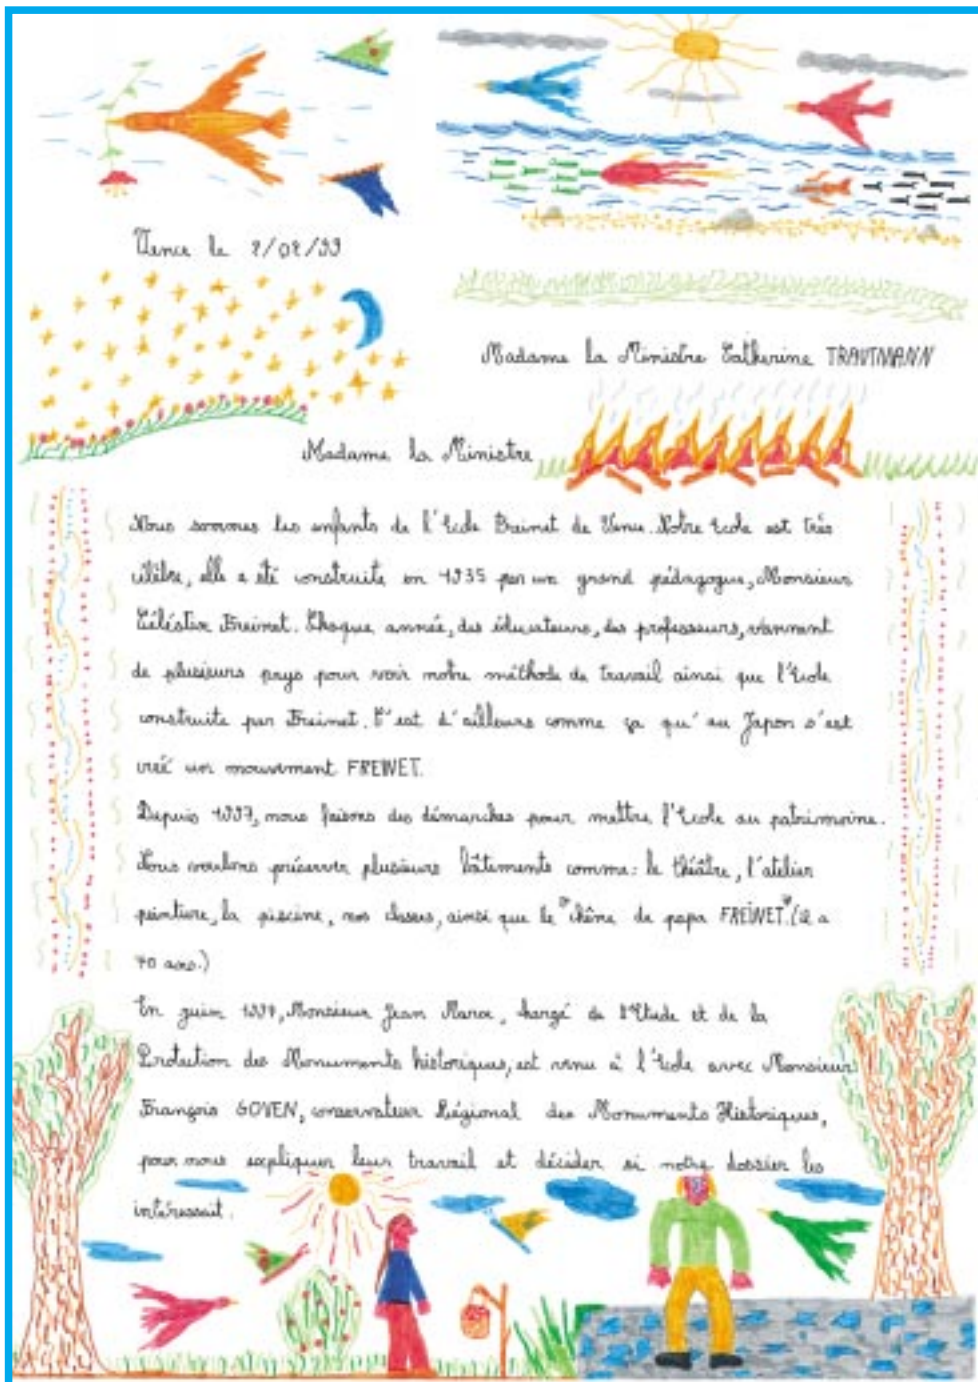 Vence le 2/02/99
Madame la Ministre Catherine TRAUTMANN
Madame la Ministre
Nous sommes les enfants de l'Ecole Freinet de Vence. Notre Ecole est très
célèbre, elle a été construite en 1935 par un grand pédagogue, Monsieur
Célestin Freinet. Chaque année, des éducateurs, des professeurs, viennent
de plusieurs pays pour voir notre méthode de travail ainsi que l'Ecole
construite par Freinet. C'est d'ailleurs comme ça qu'au Japon s'est
créé un mouvement FREINET.
Depuis 1997, nous faisons des démarches pour mettre l'Ecole au patrimoine.
Nous voulons préserver plusieurs bâtiments comme : le théâtre, l'atelier
peinture, la piscine, nos classes, ainsi que le "chêne de papa FREINET". (il a
70 ans.)
En juin, Monsieur Jean Marx, chargé de l'Etude et de la
Protection des Monuments historiques, est venu à l'Ecole avec Monsieur
François GOVEN, conservateur Régional des Monuments Historiques,
pour nous expliquer leur travail et décider si notre dossier les
intéressait.